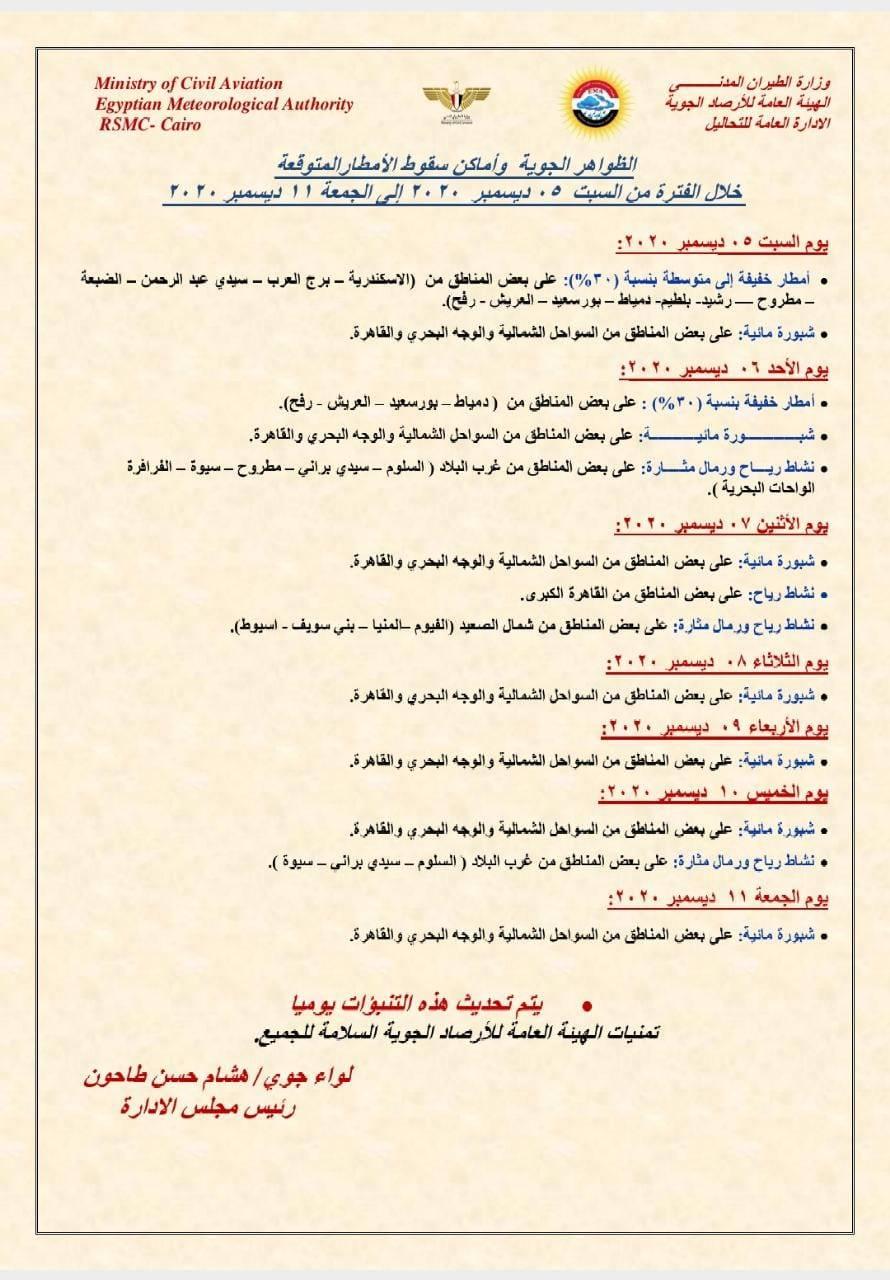 وزارة الطيران المدنـــــــي
الهيئة العامة للأرصاد الجوية
الادارة العامة للتحاليل
Ministry of Civil Aviation
Egyptian Meteorological Authority
RSMC- Cairo
EMA
الظواهر الجوية وأماكن سقوط الأمطارالمتوقعة
خلال الفترة من السبت ٠٥ ديسمبر ٢٠٢٠ إلى الجمعة ١١ ديسمبر ٢٠٢٠
يوم السبت ٠٥ ديسمبر ٢٠٢٠:
• أمطار خفيفة إلى متوسطة بنسبة (٣٠%): على بعض المناطق من (الاسكندرية – برج العرب – سيدي عبد الرحمن – الضبعة
– مطروح — رشيد- بلطيم- دمياط – بورسعيد – العريش - رفح).
• شبورة مائية: على بعض المناطق من السواحل الشمالية والوجه البحري والقاهرة.
يوم الأحد ٠٦ ديسمبر ٢٠٢٠:
• أمطار خفيفة بنسبة (٣٠%) : على بعض المناطق من ( دمياط – بورسعيد – العريش - رفح).
• شبـــــــــــورة مائيـــــــــة: على بعض المناطق من السواحل الشمالية والوجه البحري والقاهرة.
• نشاط ريـــاح ورمال مثــــارة: على بعض المناطق من غرب البلاد ( السلوم – سيدي براني – مطروح – سيوة – الفرافرة
الواحات البحرية ).
يوم الأثنين ٠٧ ديسمبر ٢٠٢٠:
• شبورة مائية: على بعض المناطق من السواحل الشمالية والوجه البحري والقاهرة.
• نشاط رياح: على بعض المناطق من القاهرة الكبرى.
• نشاط رياح ورمال مثارة: على بعض المناطق من شمال الصعيد (الفيوم –المنيا – بني سويف - اسيوط).
يوم الثلاثاء ٠٨ ديسمبر ٢٠٢٠:
• شبورة مائية: على بعض المناطق من السواحل الشمالية والوجه البحري والقاهرة.
يوم الأربعاء ٠٩ ديسمبر ٢٠٢٠:
• شبورة مائية: على بعض المناطق من السواحل الشمالية والوجه البحري والقاهرة.
يوم الخميس ١٠ ديسمبر ٢٠٢٠:
• شبورة مائية: على بعض المناطق من السواحل الشمالية والوجه البحري والقاهرة.
• نشاط رياح ورمال مثارة: على بعض المناطق من غرب البلاد ( السلوم – سيدي براني – سيوة ).
يوم الجمعة ١١ ديسمبر ٢٠٢٠:
• شبورة مائية: على بعض المناطق من السواحل الشمالية والوجه البحري والقاهرة.
• يتم تحديث هذه التنبؤات يوميا
تمنيات الهيئة العامة للأرصاد الجوية السلامة للجميع.
لواء جوي/ هشام حسن طاحون
رئيس مجلس الادارة